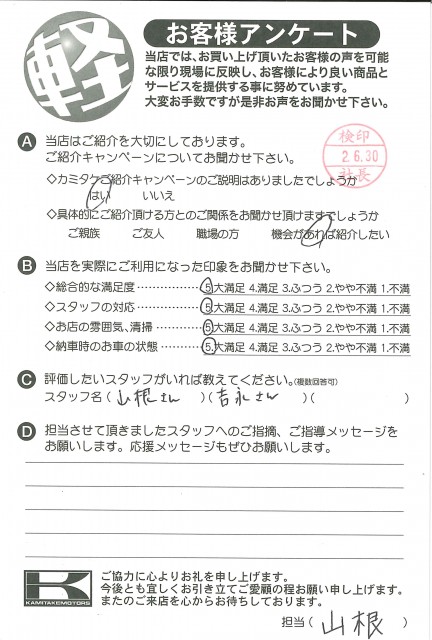 軽
お客様アンケート
当店では、お買い上げ頂いたお客様の声を可能
な限り現場に反映し、お客様により良い商品と
サービスを提供する事に努めています。
大変お手数ですが是非お声をお聞かせ下さい。
A 当店はご紹介を大切にしております。
ご紹介キャンペーンについてお聞かせ下さい。
検印
2.6.30
社長
◇カミタケご紹介キャンペーンのご説明はありましたでしょうか
はい いいえ
◇具体的にご紹介頂ける方とのご関係をお聞かせ頂けますでしょうか
ご親族 ご友人 職場の方 機会があれば紹介したい
B 当店を実際にご利用になった印象をお聞かせ下さい。
◇総合的な満足度……………5.大満足 4.満足 3.ふつう 2.やや不満 1.不満
◇スタッフの対応……………5.大満足 4.満足 3.ふつう 2.やや不満 1.不満
◇お店の雰囲気、清掃………5.大満足 4.満足 3.ふつう 2.やや不満 1.不満
◇納車時のお車の状態………5.大満足 4.満足 3.ふつう 2.やや不満 1.不満
C 評価したいスタッフがいれば教えてください。(複数回答可)
スタッフ名(山根さん)(吉永さん)( )
D 担当させて頂きましたスタッフへのご指摘、ご指導メッセージを
お願いします。応援メッセージもぜひお願いします。
K
KAMITAKEMOTORS
ご協力に心よりお礼を申し上げます。
今後とも宜しくお引き立てご愛顧の程お願い申し上げます。
またのご来店を心からお待ちしております。
担当(山根)